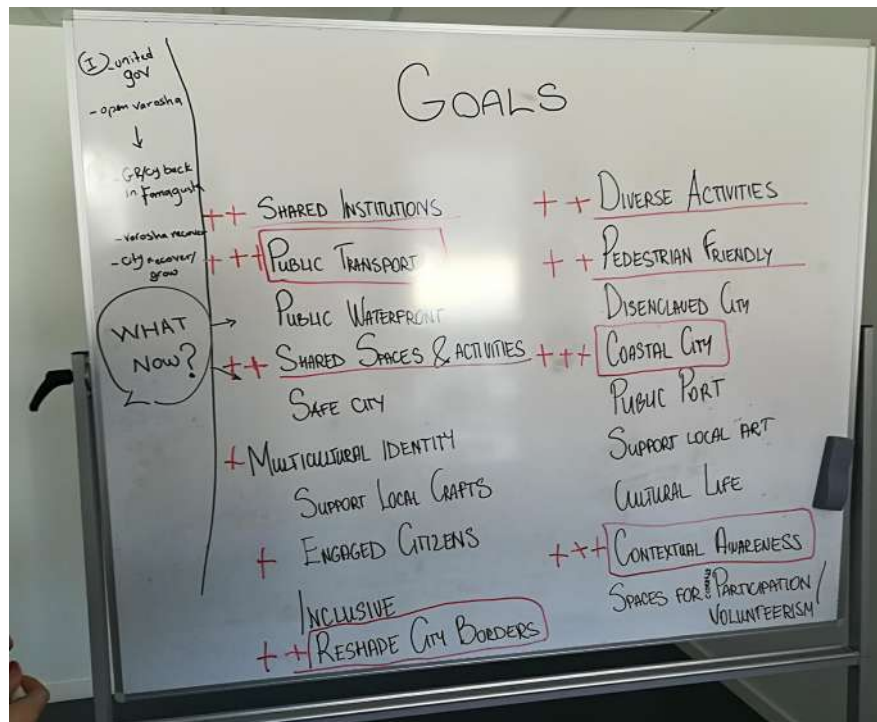 GOALS
I -united
gov
- open varosha
↓
- GR/cy back
in Famagusta
- varosha recover
- city recover/
grow
WHAT
NOW?
++ SHARED INSTITUTIONS
+++ PUBLIC TRANSPORT
→ PUBLIC WATERFRONT
++ SHARED SPACES & ACTIVITIES
SAFE CITY
+ MULTICULTURAL IDENTITY
SUPPORT LOCAL CRAFTS
+ ENGAGED CITIZENS
INCLUSIVE
++ RESHAPE CITY BORDERS
++ DIVERSE ACTIVITIES
++ PEDESTRIAN FRIENDLY
DISENCLAVED CITY
+++ COASTAL CITY
PUBLIC PORT
SUPPORT LOCAL ART
CULTURAL LIFE
+++ CONTEXTUAL AWARENESS
SPACES FOR PARTICIPATION/
VOLUNTEERISM